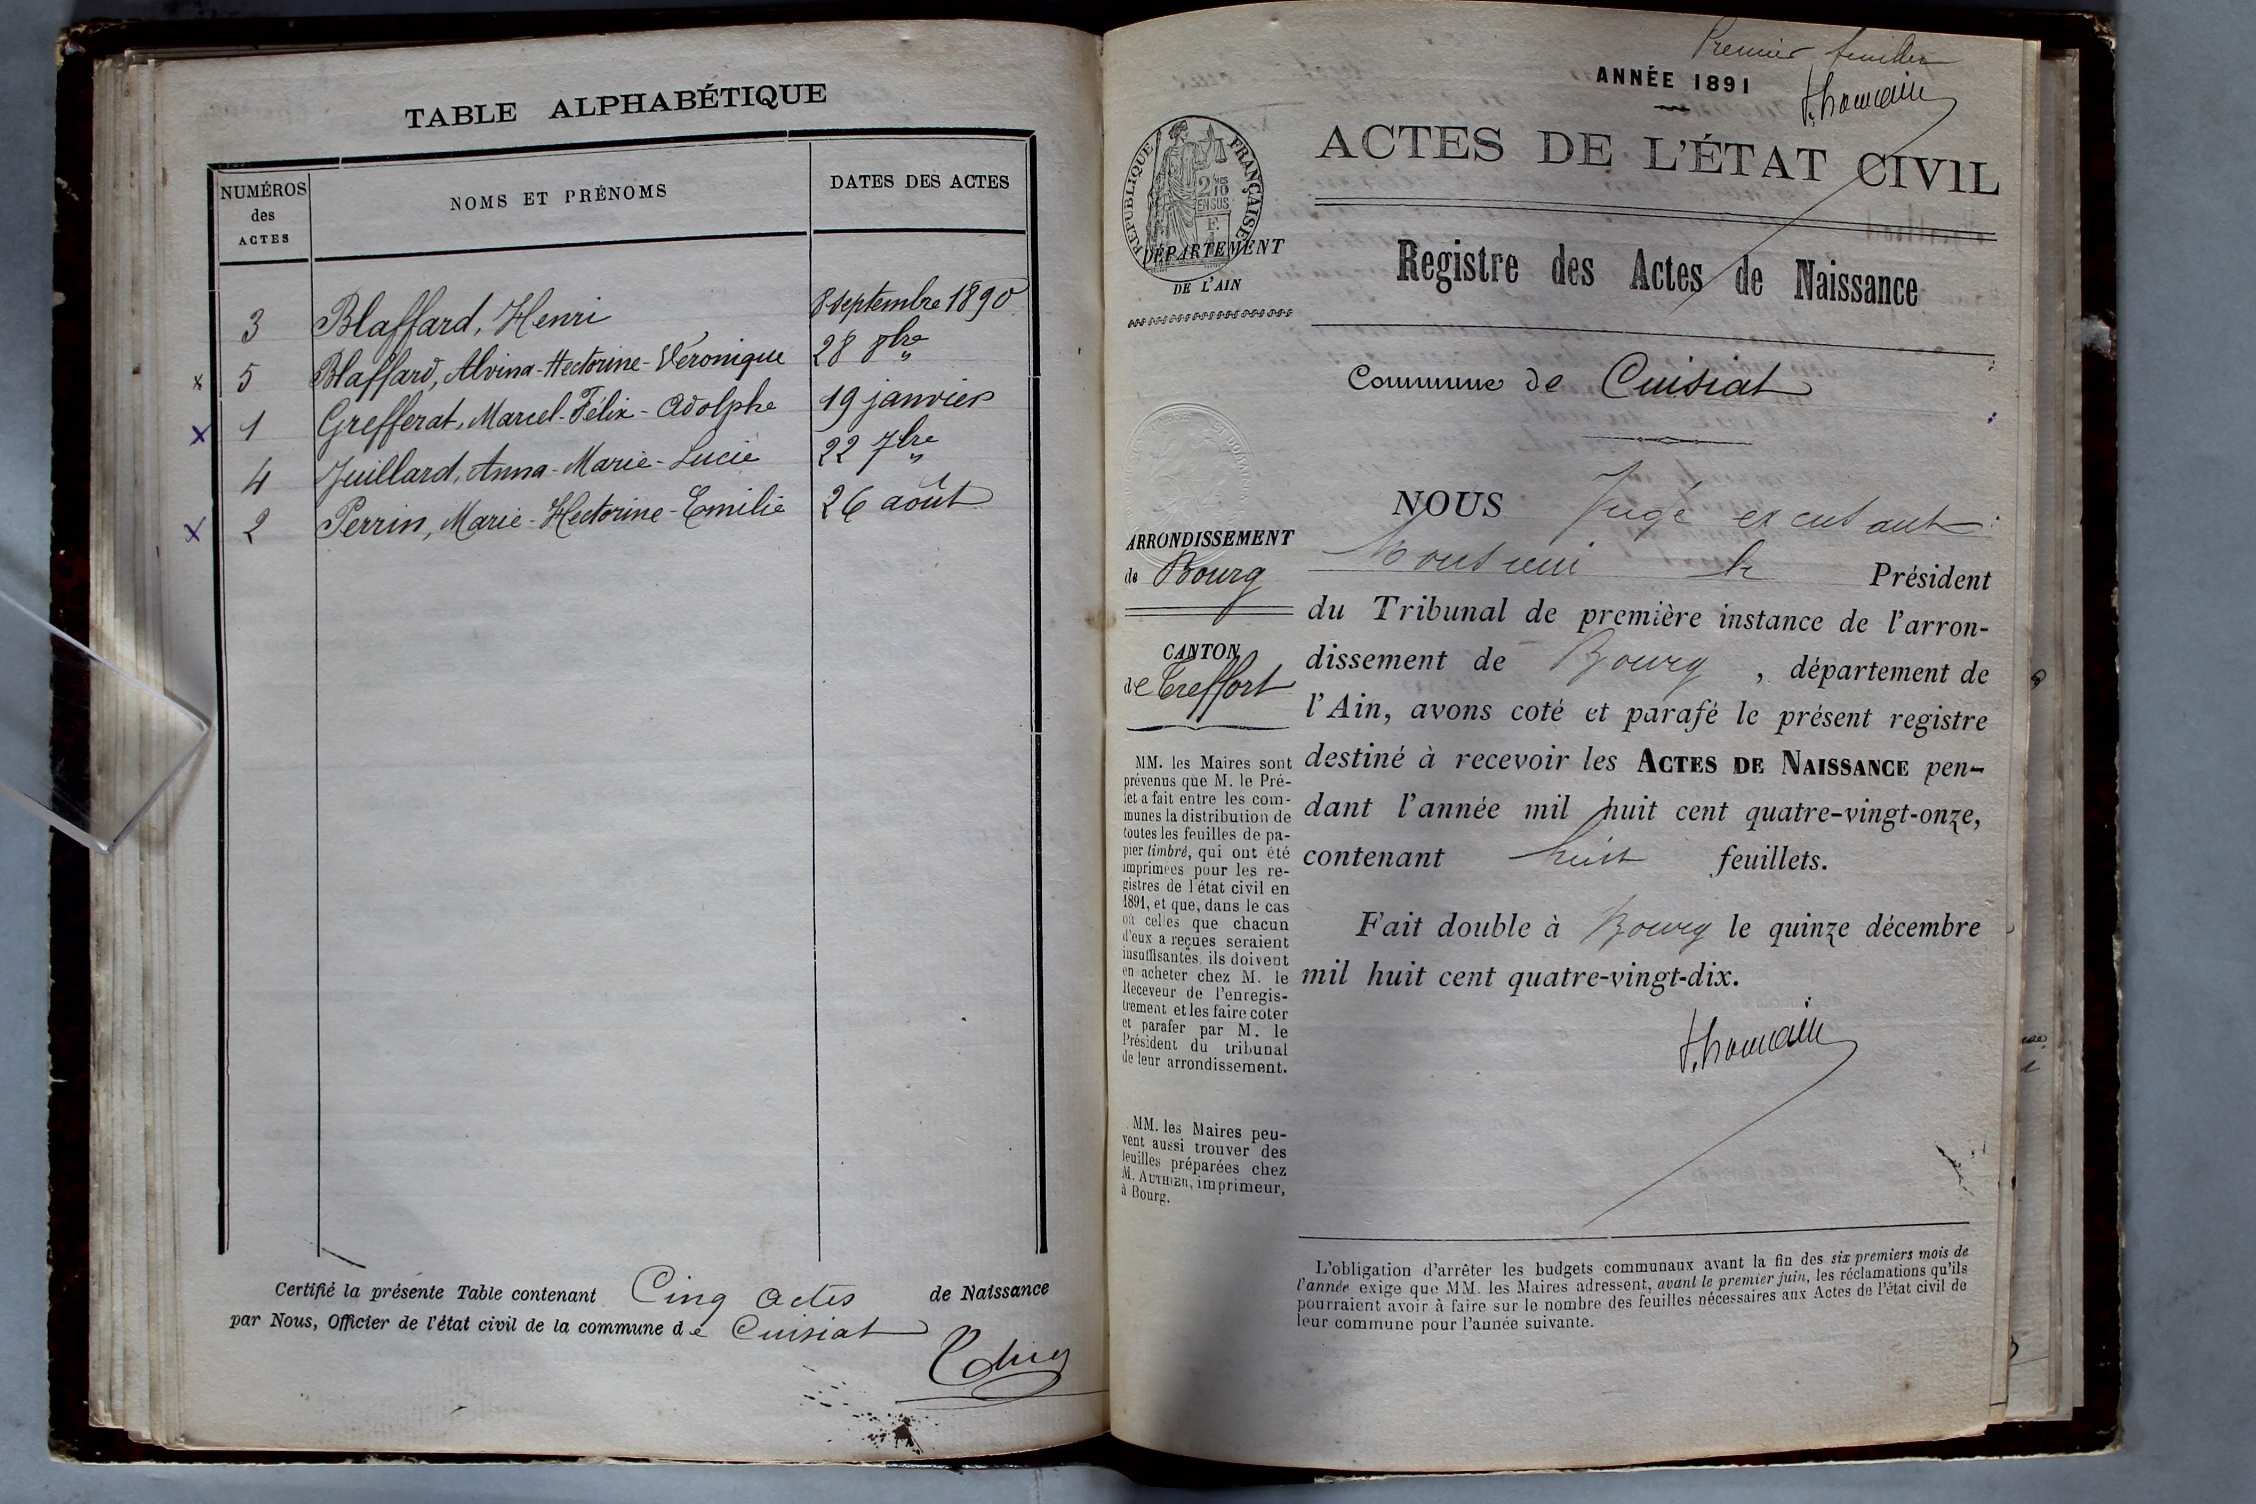 TABLE ALPHABÉTIQUE
NUMÉROS des ACTES
NOMS ET PRÉNOMS
DATES DES ACTES
3 Blaffard, Henri 8 septembre 1890
x 5 Blaffard, Alvina-Hectorine-Véronique 28 8bre "
x 1 Grefferat, Marcel-Félix-Adolphe 19 janvier
4 Juillard, Anna-Marie-Lucie 22 7bre "
x 2 Perrin, Marie-Hectorine-Emilie 26 août
Certifié la présente Table contenant Cinq actes de Naissance
par Nous, Officier de l'état civil de la commune de Cuisiat
Premier feuillet
ANNÉE 1891
ACTES DE L'ÉTAT CIVIL
RÉPUBLIQUE FRANÇAISE
2 10
EN SUS
DÉPARTEMENT
DE L'AIN
Registre des Actes de Naissance
Commune de Cuisiat
ARRONDISSEMENT
de Bourg
CANTON
de Treffort
MM. les Maires sont
prévenus que M. le Pré-
fet a fait entre les com-
munes la distribution de
toutes les feuilles de pa-
pier timbré, qui ont été
imprimées pour les re-
gistres de l'état civil en
1891, et que, dans le cas
où celles que chacun
d'eux a reçues seraient
insuffisantes, ils doivent
en acheter chez M. le
Receveur de l'enregis-
trement et les faire coter
et parafer par M. le
Président du tribunal
de leur arrondissement.
MM. les Maires peu-
vent aussi trouver des
feuilles préparées chez
M. AUTHIER, imprimeur,
à Bourg.
NOUS Juge excusant
Monsieur le Président
du Tribunal de première instance de l'arron-
dissement de Bourg, département de
l'Ain, avons coté et parafé le présent registre
destiné à recevoir les ACTES DE NAISSANCE pen-
dant l'année mil huit cent quatre-vingt-onze,
contenant huit feuillets.
Fait double à Bourg le quinze décembre
mil huit cent quatre-vingt-dix.
L'obligation d'arrêter les budgets communaux avant la fin des six premiers mois de
l'année exige que MM. les Maires adressent, avant le premier juin, les réclamations qu'ils
pourraient avoir à faire sur le nombre des feuilles nécessaires aux Actes de l'état civil de
leur commune pour l'année suivante.